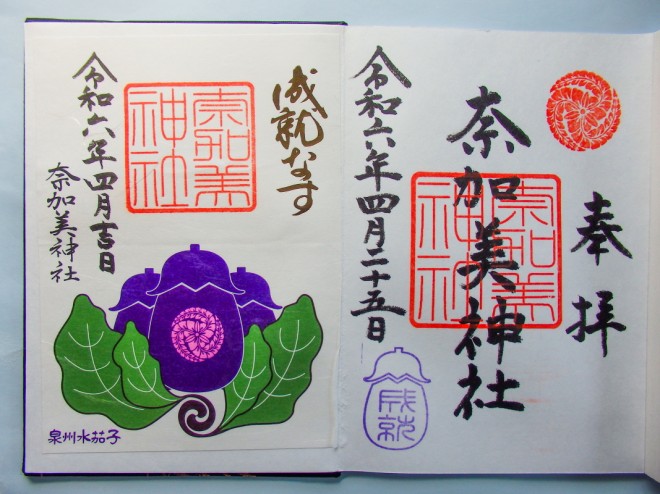 奉拝
奈加美神社
奈加美
神社
令和六年四月二十五日
成就
成就なす
奈加美
神社
令和六年四月吉日
奈加美神社
泉州水茄子